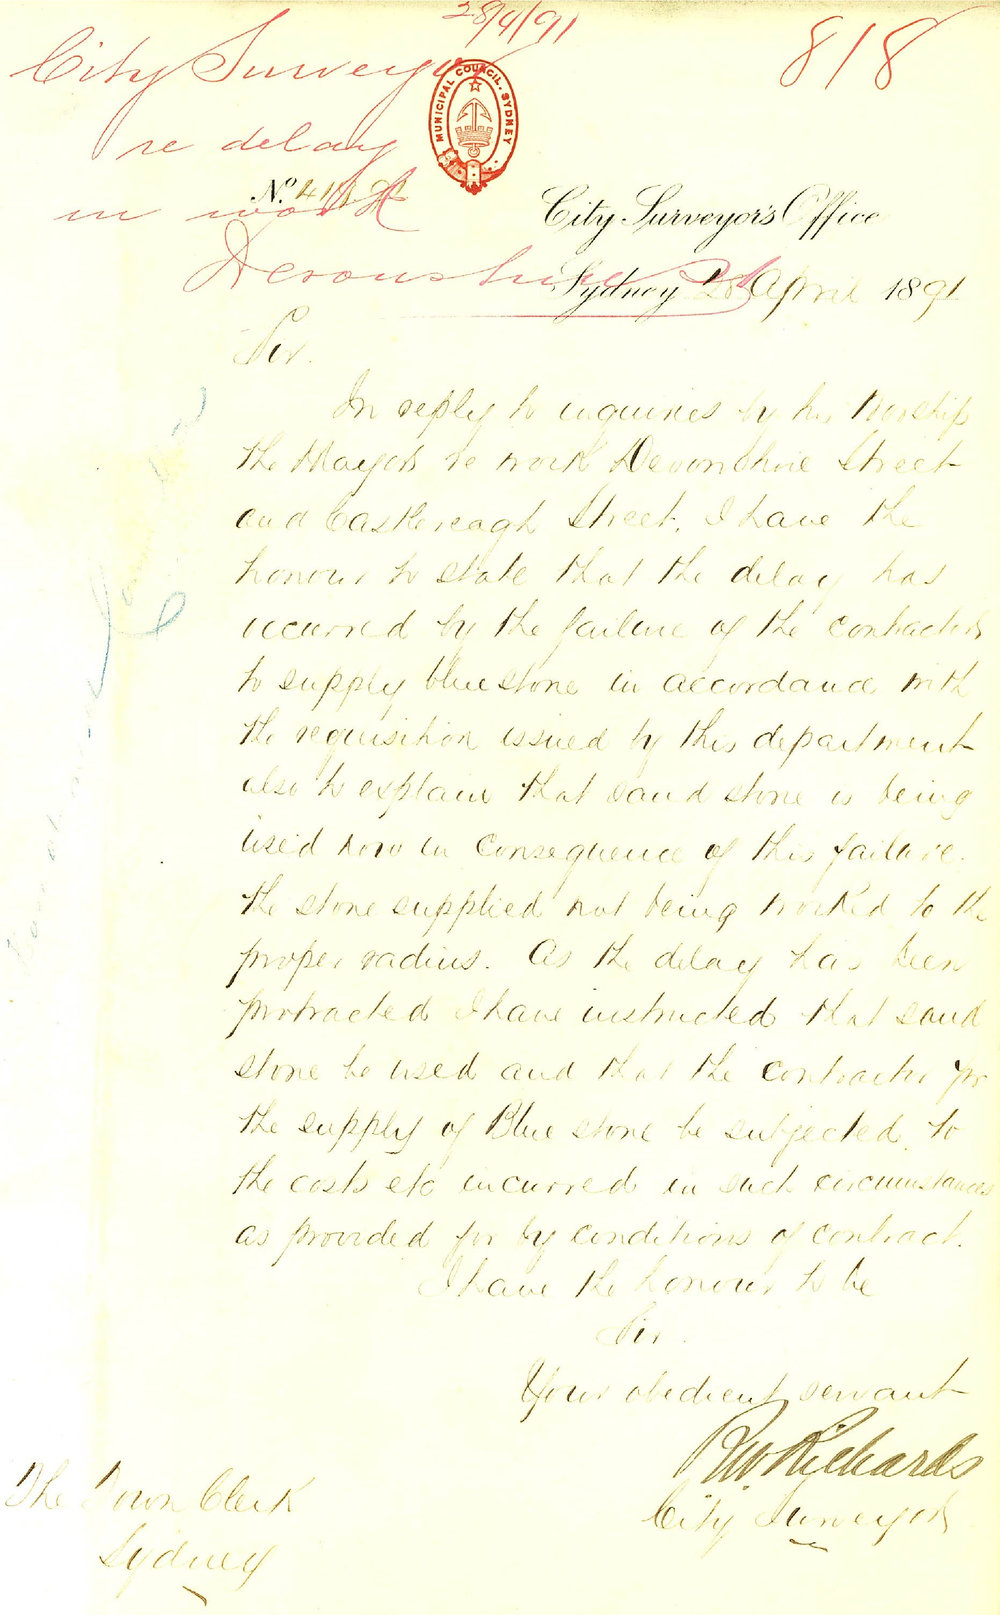 28/4/91
818
City Surveyor
re delay
in work
Devonshire St
MUNICIPAL COUNCIL. SYDNEY
No.
City Surveyor's Office
Sydney 28 April 1891
Sir.
In reply to inquiries by his Worship
the Mayor re work Devonshire Street
and Castlereagh Street, I have the
honour to state that the delay has
occurred by the failure of the contractors
to supply blue stone in accordance with
the requisition issued by this department
also to explain that sand stone is being
used now in consequence of this failure.
the stone supplied not being worked to the
proper radius. As the delay has been
protracted I have instructed that sand
stone be used and that the contractor for
the supply of Blue stone be subjected to
the costs etc incurred in such circumstances
as provided for by conditions of contract.
I have the honour to be
Sir.
Your obedient servant
RW Richards
City Surveyor
The Town Clerk
Sydney